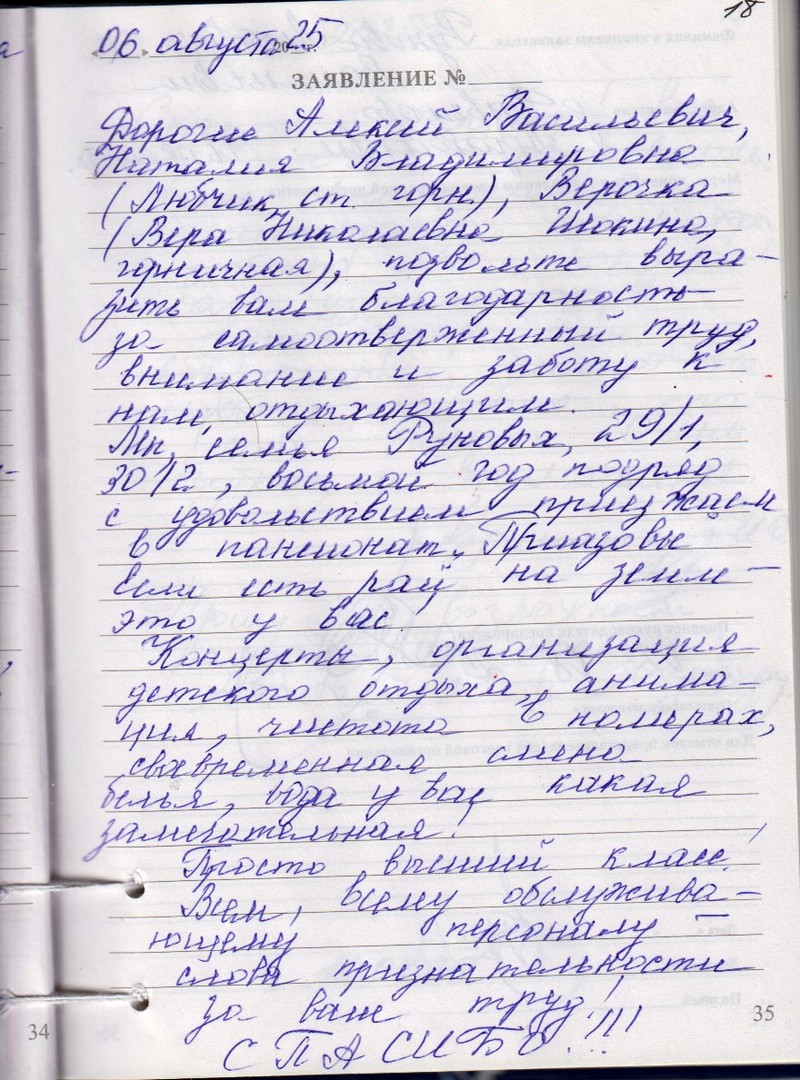 18
06 августа 2025 г.
ЗАЯВЛЕНИЕ №
Дорогие Алексей Васильевич,
Наталия Владимировна
(Любчик ст. горн.), Верочка
(Вера Николаевна Шокина,
горничная), позвольте выра-
зить вам благодарность
за самоотверженный труд,
внимание и заботу к
нам, отдыхающим.
Мы, семья Руновых, 29/1,
30/2, восьмой год подряд
с удовольствием приезжаем
в пансионат „Приазовье
Если есть рай на земле —
это у вас
Концерты, организация
детского отдыха, анима-
ция, чистота в номерах,
своевременная смена
белья, вода у вас какая
замечательная!
Просто высший класс!
Всем, всему обслужива-
ющему персоналу —
слова признательности
за ваш труд!
СПАСИБО!!!
34
35